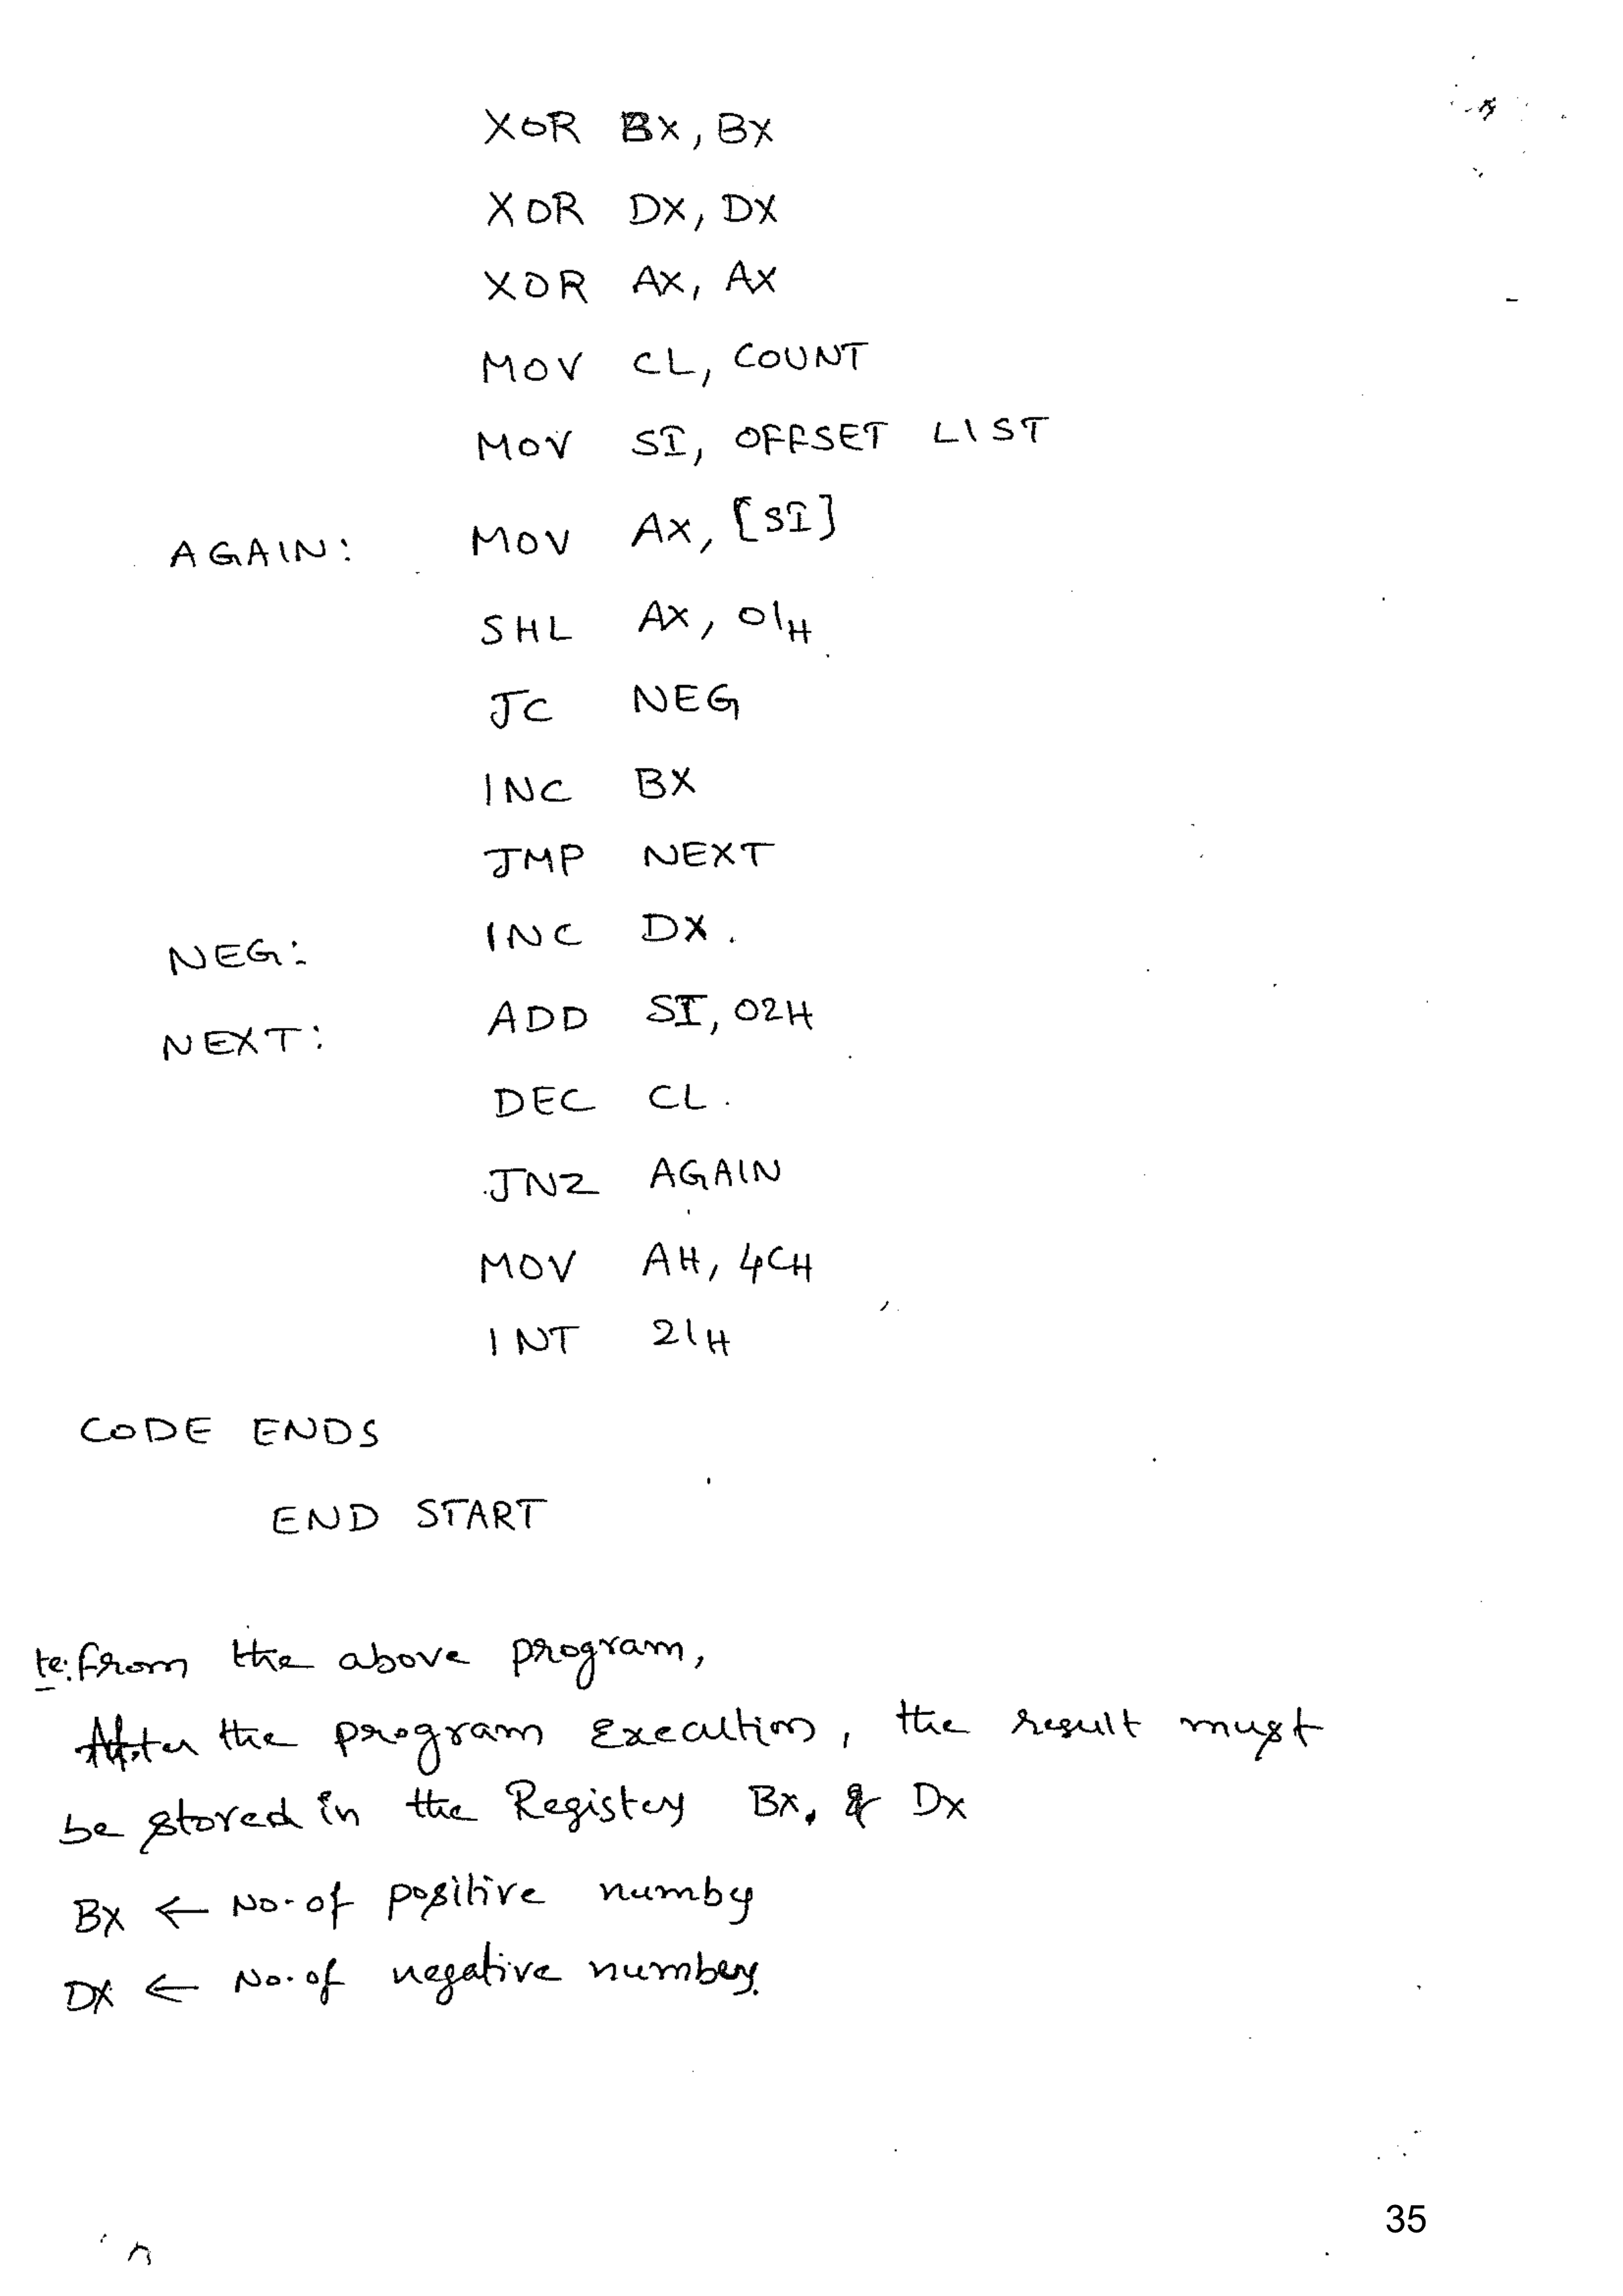 XOR BX, BX
XOR DX, DX
XOR AX, AX
MOV CL, COUNT
MOV SI, OFFSET LIST
AGAIN: MOV AX, [SI]
SHL AX, 01H
JC NEG
INC BX
JMP NEXT
NEG: INC DX.
NEXT: ADD SI, 02H
DEC CL.
JNZ AGAIN
MOV AH, 4CH
INT 21H
CODE ENDS
END START
te: from the above program,
After the program Execution, the result must
be stored in the Register BX, & DX
BX ← No. of positive number
DX ← No. of negative number.
35